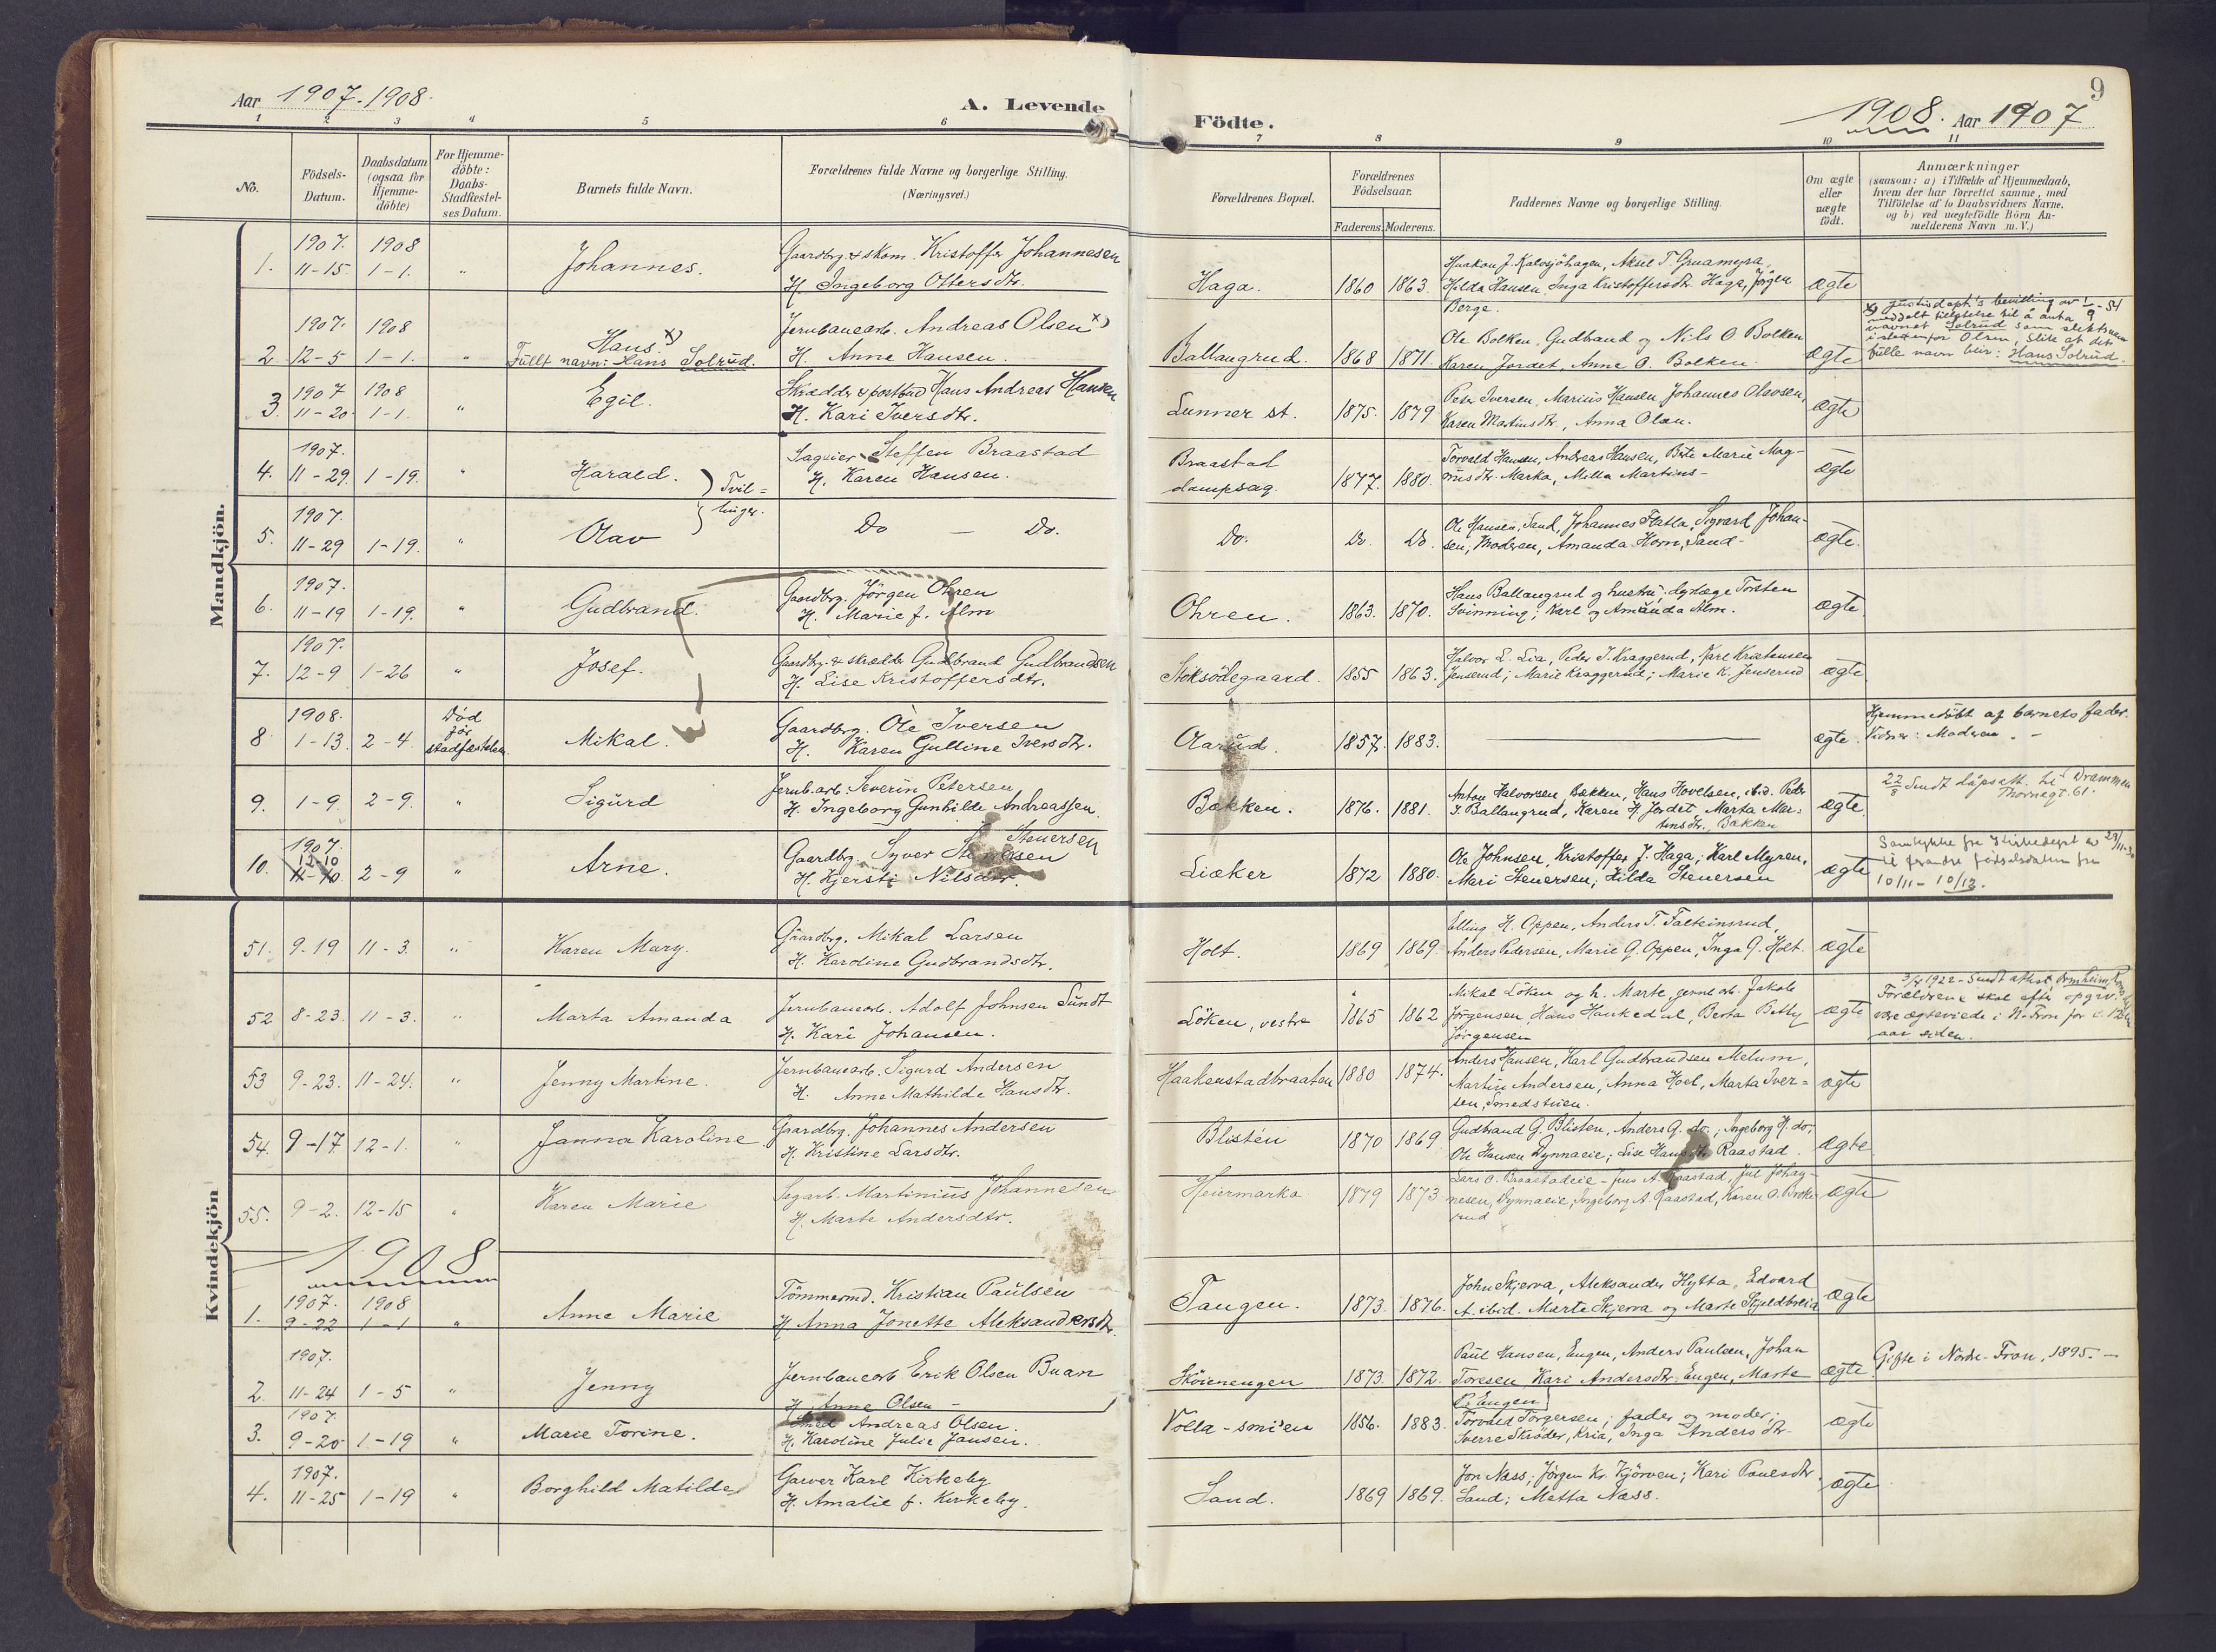 Aar 1907-1908.
A. Levende
Födte.
1908. Aar 1907
9
1 2 3 4 5 6 7 8 9 10 11
No.
Födsels-
Datum.
Daabsdatum
(ogsaa for
Hjemme-
döbte)
For Hjemme-
döbte:
Daabs-
Stadfæstel-
ses Datum.
Barnets fulde Navn.
Forældrenes fulde Navne og borgerlige Stilling.
(Næringsvei.)
Forældrenes Bopæl.
Forældrenes
Födselsaar.
Faderens. Moderens.
Faddernes Navne og borgerlige Stilling.
Om ægte
eller
uægte
födt.
Anmærkninger
(saasom: a) i Tilfælde af Hjemmedaab,
hvem der har forrettet samme, med
Tilföielse af to Daabsvidners Navne.
og b) ved uægtefödte Börn An-
melderens Navn m.V.)
Mandkjön.
1. 1907. 11-15 1908 1-1. " Johannes.
Gaardbrg. & skom. Kristoffer Johannesen
H. Ingeborg Ottersdtr.
Haga. 1860 1863.
Haakon J. Kalvsjöhagen, Aksel T. Gruamyra,
Hilda Hansen, Inga Kristoffersdtr. Haga, Jörgen
Berge.
ægte
2. 1907. 12-5 1908 1-1. " Hans. x)
Fullt navn: Hans Solrud.
Jernbanearb. Andreas Olsen x)
H. Anne Hansen.
Ballangrud. 1868 1871.
Ole Bolken, Gudbrand og Nils O. Bolken
Karen Jordet, Anne O. Bolken.
ægte
x) Justisdept's bevilling av 1/9-54
meddelt tillatelse til å anta
navnet Solrud som slektsnavn
istedenfor Olsen, slik at det
fulle navn blir: Hans Solrud.
3. 1907 11-20 1908 1-1. " Egil.
Skrædder & postbud Hans Andreas Hansen
H. Kari Iversdtr.
Lunner st. 1875. 1879
Peter Iversen, Marius Hansen, Johannes Olavsen,
Karen Martinsdtr., Anna Olsen.
ægte
4. 1907. 11-29. 1-19. " Harald.
Tvil=
linger.
Sageier Steffen Braastad
H. Karen Hansen.
Braastad
dampsag. 1877. 1880.
Torvald Hansen, Andreas Hansen, Berte Marie Mag-
nusdtr. Marka, Milla Martins-
ægte
5. 1907. 11-29 1-19. " Olav
Do — Do.
Do. Do. Do.
Ole Hansen, Sand, Johannes Flatla, Sigvard Johan-
sen; Moderen, Amanda Horn, Sand-
ægte.
6. 1907. 11-19 1-19. " Gudbrand.
Gaardbrg. Jörgen Ohren
H. Marie f. Alm
Ohren. 1863. 1870.
Hans Ballangrud og hustru; dyrlæge Torsten
Svinning; Karl og Amanda Alm.
ægte
7. 1907. 12-9 1-26 " Josef.
Gaardbrg. & skrædder Gudbrand Gudbrandsen
H. Lise Kristoffersdtr.
Stoksödegaard. 1855 1863.
Halvor L. Lia, Peder I. Kraggerud, Karl Kristensen
Jenserud; Marie Kraggerud; Marie K. Jenserud
ægte
8 1908. 1-13. 2-4. Död
før
stadfæstelsen
Mikal.
Gaardbrg. Ole Iversen
H. Karen Gulline Iversdtr.
Aarud. 1857. 1883.
ægte.
Hjemmedöbt af barnets fader.
Vidner: Moderen. -
9. 1-9. 2-9. " Sigurd
Jernb.arb. Severin Petersen
H. Ingeborg Gunhilde Andreassen.
Bækken. 1876. 1881.
Anton Halvorsen Bækken, Hans Hovelsen, ibid. Peder
I. Ballangrud, Karen H. Jordet, Marta Mar-
tinsdtr. Bækken
ægte
22/8 Sendt dåpsatt. til Drammen
Thornegt. 61.
10. 1907. 12-10 11-10. 2-9 " Arne.
Gaardbrg. Syver Stenersen
H. Kjersti Nilsdtr.
Liæker 1872 1880.
Ole Johnsen, Kristoffer J. Haga; Karl Myren,
Mari Stenersen; Hilda Stenersen
ægte
Samtykke fra Kirkedept av 29/11-30
til forandre fødselsdatum fra
10/11 - 10/12.
Kvindekjön
51. 9-19 11-3. " Karen Mary.
Gaardbrg. Mikal Larsen
H. Karoline Gudbrandsdtr.
Holt. 1869 1869.
Elling H. Oppen, Anders T. Falkeinsrud,
Anders Pedersen, Marie G. Oppen, Inga G. Holt.
ægte
52 8-23. 11-3. " Marta Amanda
Jernbanearb. Adolf Johnsen Sundt
H. Kari Johansen.
Löken, vestre 1865 1862
Mikal Löken og h. Marte, jernb.arb. Jakob
Jörgensen, Hans Hankedal, Berta Betty
Jörgensen
ægte
3/4 1922 - Sendt attest
Forældrene skal efter opgiv.
være ægteviede i N-Fron for c. 12
aar siden.
53 9-23. 11-24. " Jenny Martine.
Jernbanearb. Sigurd Andersen
H. Anne Mathilde Hansdtr.
Haakenstadbraaten 1880 1874.
Anders Hansen, Karl Gudbrandsen Melum,
Martin Andersen, Anna Hoel, Marta Iver=
sen, Smedstuen.
ægte
54. 9-17 12-1. " Janna Karoline
Gaardbrg. Johannes Andersen
H. Kristine Larsdtr.
Blistén 1870 1869
Gudbrand G. Blisten, Anders G. do.; Ingeborg H. do;
Ole Hansen Dynnaeie; Lise Hansdtr. Raastad.
ægte
55. 9-2. 12-15 " Karen Marie
Sagarb. Martinius Johannesen
H. Marte Andersdtr.
Heiermarka 1879 1873
Lars O. Braastadeie - Jens A. Raastad, Jul Johan-
nesen, Dynnaeie, Ingeborg A. Raastad, Karen O. Broke-
rud
ægte
1908
1. 1907. 9-22 1908 1-1 " Anne Marie
Tömmermd. Kristian Paulsen
H. Anna Jonette Aleksandersdtr.
Tangen. 1873. 1876.
John Skjerva, Aleksander Hytta, Edvard
A. ibid. Marte Skjerva og Marte Skjeldbreia
ægte
2. 1907. 11-24 1-5 " Jenny
Jernbanearb Erik Olsen Buan
H. Anne Olsen -
Sköienengen 1873. 1872.
Paul Hansen, Engen, Anders Paulsen, Johan
Toresen, Kari Andersdtr. Engen, Marte
P. Engen
ægte
Gifte i Nordre-Fron, 1895. -
3. 1907. 9-20 1-19 " Marie Torine.
Smed Andreas Olsen.
H. Karoline Julie Jansen.
Volla-smi'en 1856. 1883.
Torvald Torgersen; fader og moder;
Sverre Skröder, Kria, Inga Andersdtr.
ægte
4. 1907. 11-25 1-19 " Borghild Matilde
Garver Karl Kirkeby
H. Amalie f. Kirkeby.
Sand. 1869 1869.
Jon Næss; Jörgen Kr. Kjörven; Kari Paulsdtr.
Sand; Metta Næss.
ægte